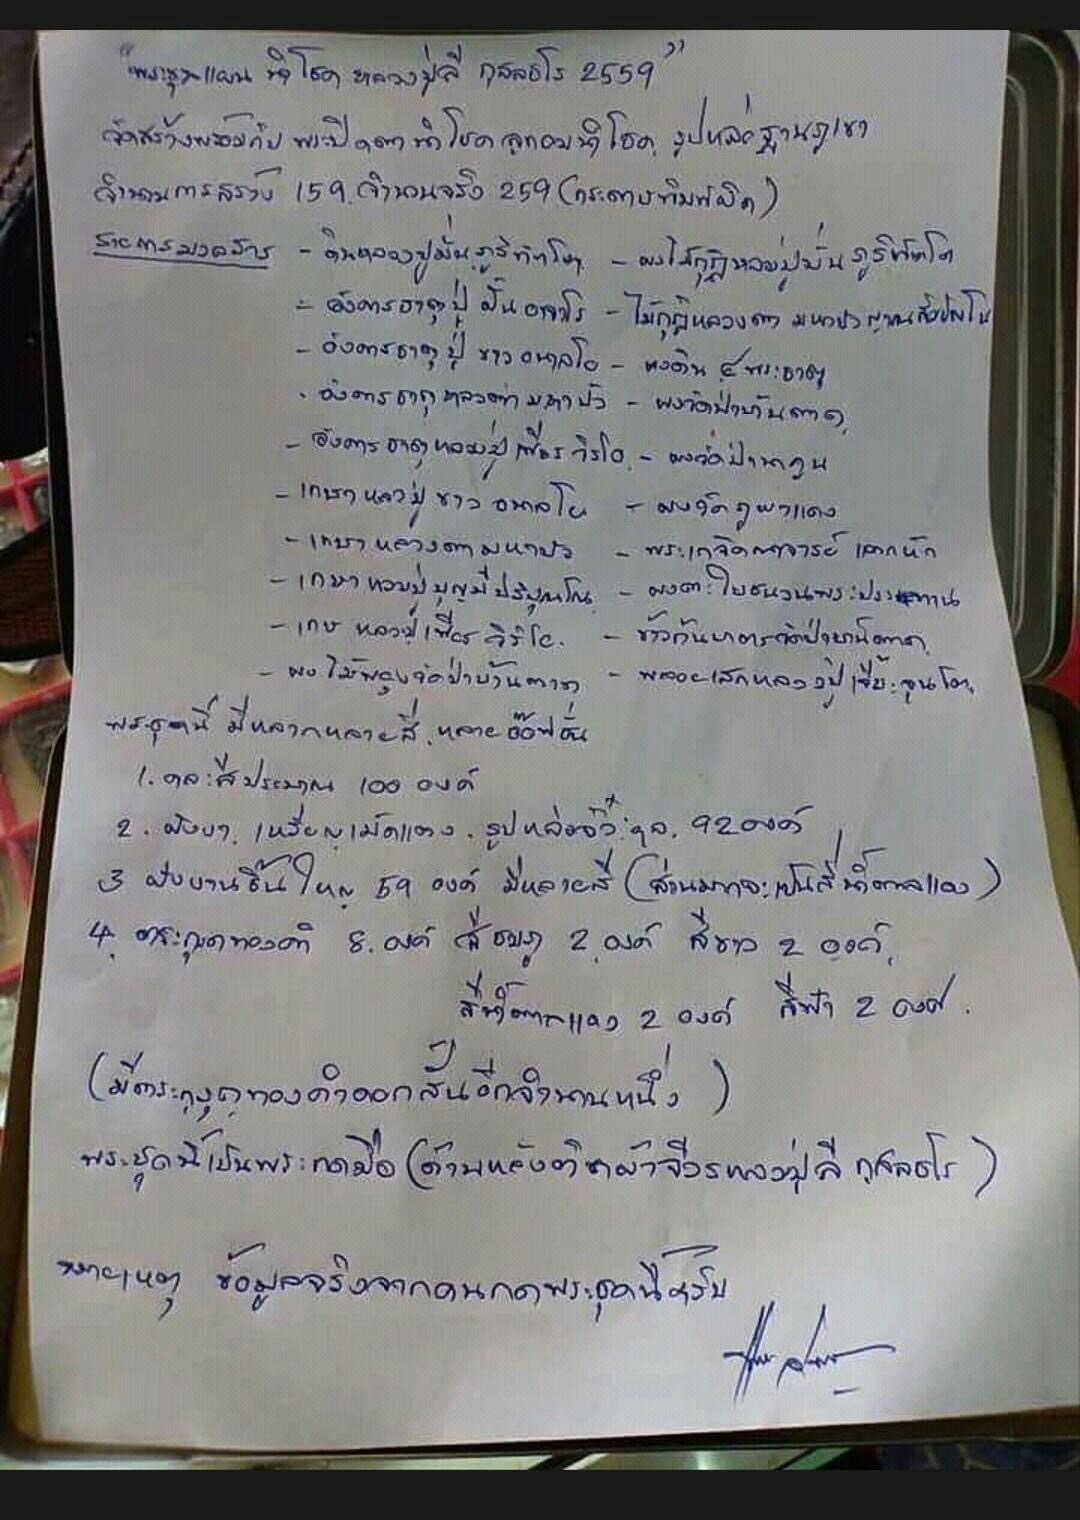 "พระขุนแผน นำโชค หลวงปู่ลี กุสลธโร 2559"
จัดสร้างพร้อมกับ พระปิดตานำโชค ลูกอมนำโชค, รูปหล่อฐานภูเขา
จำนวนการสร้าง 159 จำนวนจริง 259 (กระดาษพิมพ์ผิด)
รายการมวลสาร - ดินหลวงปู่มั่น ภูริทัตโต, - ผงไม้กุฏิหลวงปู่มั่น ภูริทัตโต
- อังคารธาตุปู่ มั่น - ไม้กุฏิหลวงตา มหาบัว ญาณสัมปันโน
- อังคารธาตุ ปู่ ขาว อนาลโย - ผงดิน ๔ พระธาตุ
- อังคารธาตุ หลวงตามหาบัว - ผงวัดป่าบ้านตาด,
- อังคารธาตุหลวงปู่เพียร วิริโย, - ผงวัดป่านาคูณ
- เกษา หลวงปู่ ขาว อนาลโย - ผงวัดภูผาแดง
- เกษา หลวงตามหาบัว - พระเกจิคณาจารย์ แตกหัก
- เกษา หลวงปู่ บุญมี ปริปุณโณ, - ผงตะไบชนวนพระประธาน
- เกษา หลวงปู่เพียร วิริโย. - ข้าวก้นบาตรวัดป่าบ้านตาด,
- ผงไม้พยุงวัดป่าบ้านตาด - พลอยเสกหลวงปู่เจี๊ยะ จุนโท,
พระชุดนี้ มีหลากหลายสี, หลายอ๊อฟชั่น
1. คละสีประมาณ 100 องค์
2. ฝังยา, เหรียญเม็ดแตง, รูปหล่อจิ๋ว 92 องค์
3 ฝังจานชิ้นใหญ่ 59 องค์ มีหลายสี (ส่วนมากจะเป็นสีน้ำตาลแดง)
4. ตระกุดทองคำ 8 องค์ สีชมภู 2 องค์ สีขาว 2 องค์,
สีน้ำตาลแดง 2 องค์ สีฟ้า 2 องค์.
(มีตระกุดทองคำดอกสั้นอีกจำนวนหนึ่ง)
พระชุดนี้เป็นพระกดมือ (ด้านหลังติดผ้าจีวรหลวงปู่ลี กุสลธโร)
หมายเหตุ ข้อมูลจริงจากคนกดพระชุดนี้ครับ